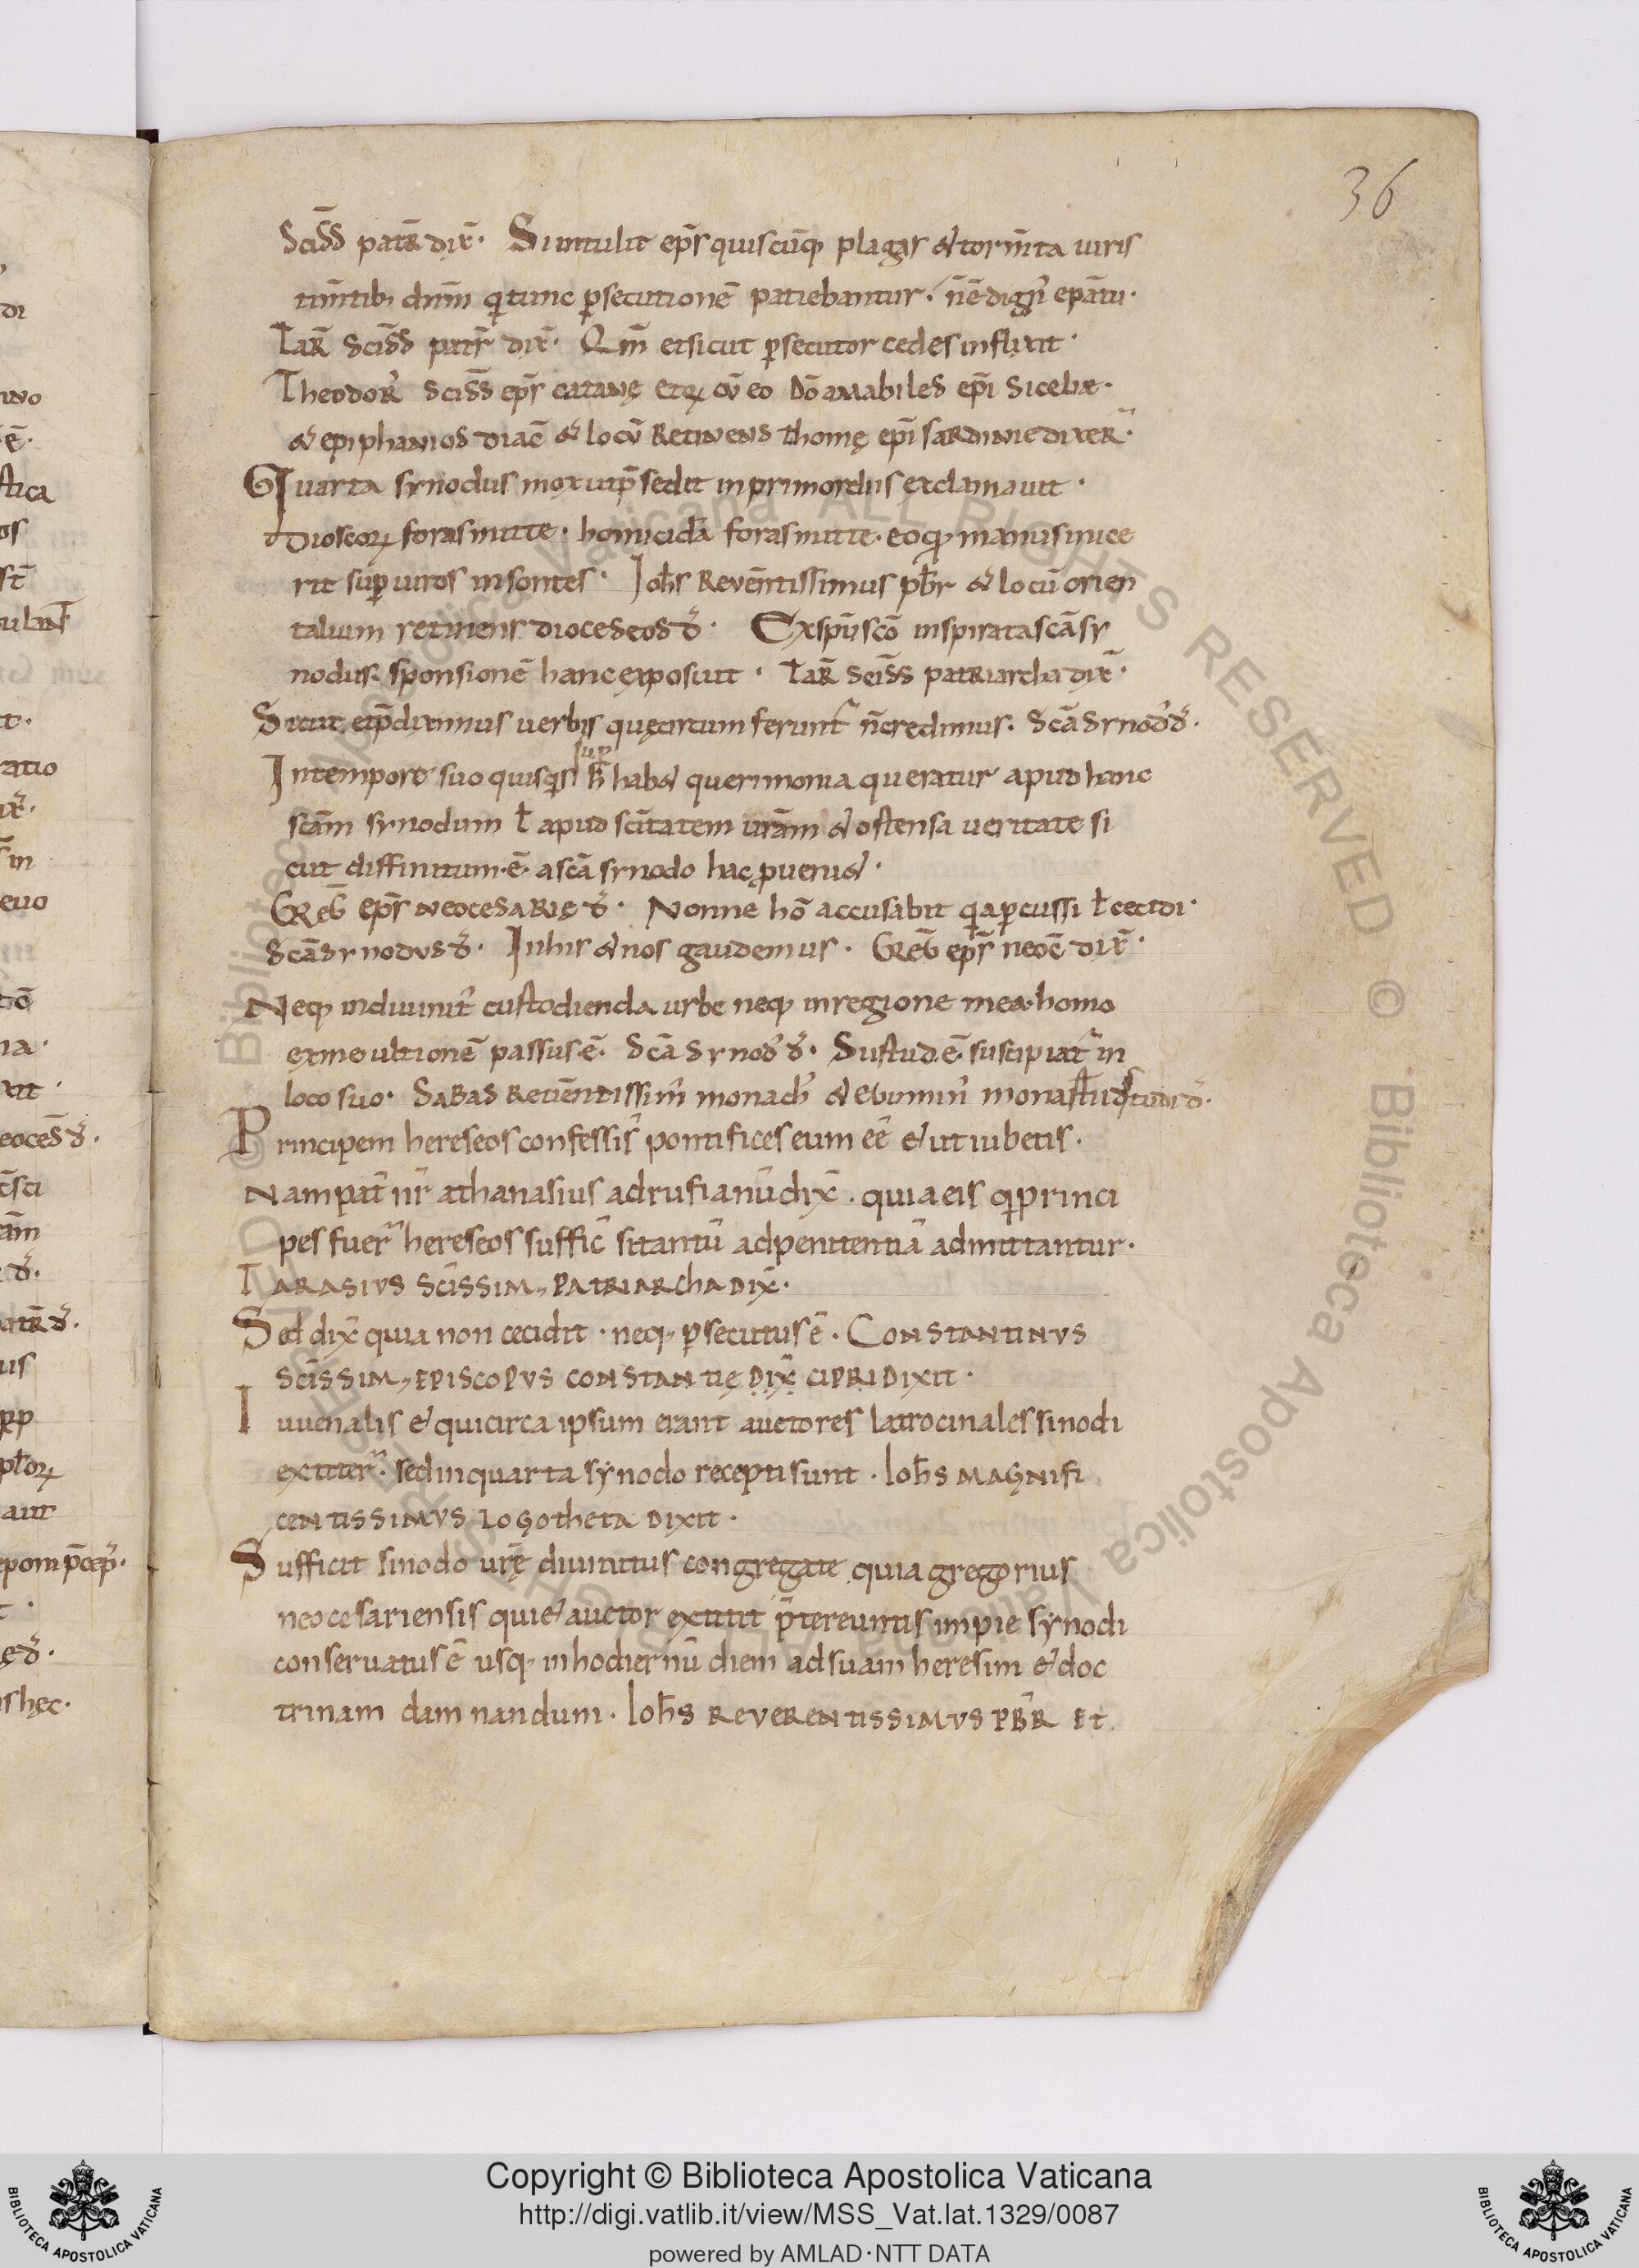 36
Scissꝰ patꝝ dix̄· Si intulit ep̄s quiscūq; plagas & torm̄ta uiris
tim̄tib; dn̄m q̄ tunc p̄secutionē patiebantur· n̄ ē dign' ep̄atu·
Tar̄ sciss patr̄ dix̄· Qm̄ etsicut p̄secutor cedes inflixit·
Theodor' sciss ep̄s catanę etq; cū eo dō amabiles ep̄i siceliæ·
& epiphanios diac̄ & locū retinens thomę ep̄i sardinie dixer̄·
Quarta synodus mox ut p̄sedit in primordiis exclamauit·
Dioscorꝝ foras mitte· homicidā foras mitte· eo q; manus iniece
rit sup uiros insontes· Ioh̄s reverēntissimus pb̄r & locū orien
talium retinens dioceseos d̄· Ex sp̄u sc̄o inspirata sc̄a sy
nodus sponsionē hanc exposuit· Tar̄ sciss patriarcha dix̄·
Sicut et p̄diximus uerbis quę circumferunt' n̄ credimus· Sc̄a synod' d̄·
sup
In tempore suo quisq; si h̄ hab& querimonia queratur apud hanc
sc̄am synodum ł apud sc̄itatem ur̄am & ostensa ueritate si
cut diffinitum·ē· a sc̄a synodo hac p̄ueni&·
Greḡ ep̄s neocesarię d̄· Nonne hō accusabit q̄a p̄cussi ł cecidi·
Sc̄a synodvs d̄· In his & nos gaudemus· Greḡ ep̄s neoc̄ dix̄·
Neq; indiuinit' custodienda urbe neq; in regione mea· homo
ex me ultionē passus·ē· Sc̄a synod' d̄· Si istud·ē· suscipiat' in
loco suo· Sabas reuēntissim' monach' & egumin' monast̄ii studii d̄·
Principem hereseos confessi s̄ pontifices eum eē & ut iubetis·
Nam pat̄ nr̄ athanasius ad rufianū dix̄· quia eis q̄ princi
pes fuer̄ hereseos suffic̄ si tantū ad penitentiā admittantur·
Tarasivs sc̄issim; patriarcha dix̄·
Sed dix̄ quia non cecidit· neq; p̄secutus ē· Constantinvs
sc̄issim; episcopvs constantię dix̄ cipri dixit·
Iuuenalis & qui circa ipsum erant auctores latrocinales sinodi
extiter̄· sed in quarta synodo recepti sunt· Ioh̄s magnifi
centissimvs logotheta dixit·
Sufficit sinodo ur̄ę diuinitus congregate quia gregorius
neocesariensis qui & auctor extitit p̄tereuntis impie synodi
conseruatus ē usq; in hodiernū diem ad suam heresim & doc
trinam damnandum· Ioh̄s reverentissimvs pb̄r et
Copyright © Biblioteca Apostolica Vaticana
http://digi.vatlib.it/view/MSS_Vat.lat.1329/0087
powered by AMLAD·NTT DATA
BIBLIOTECA APOSTOLICA VATICANA
BIBLIOTECA APOSTOLICA VATICANA